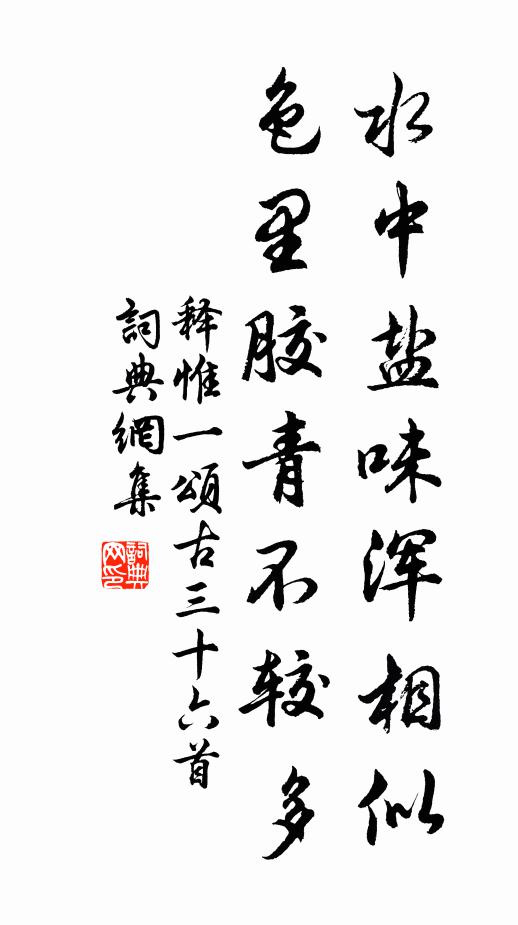 水中盐味浑相似
色里胶青不较多
释惟一颂古三十六首
詞典網集
詞典
网印